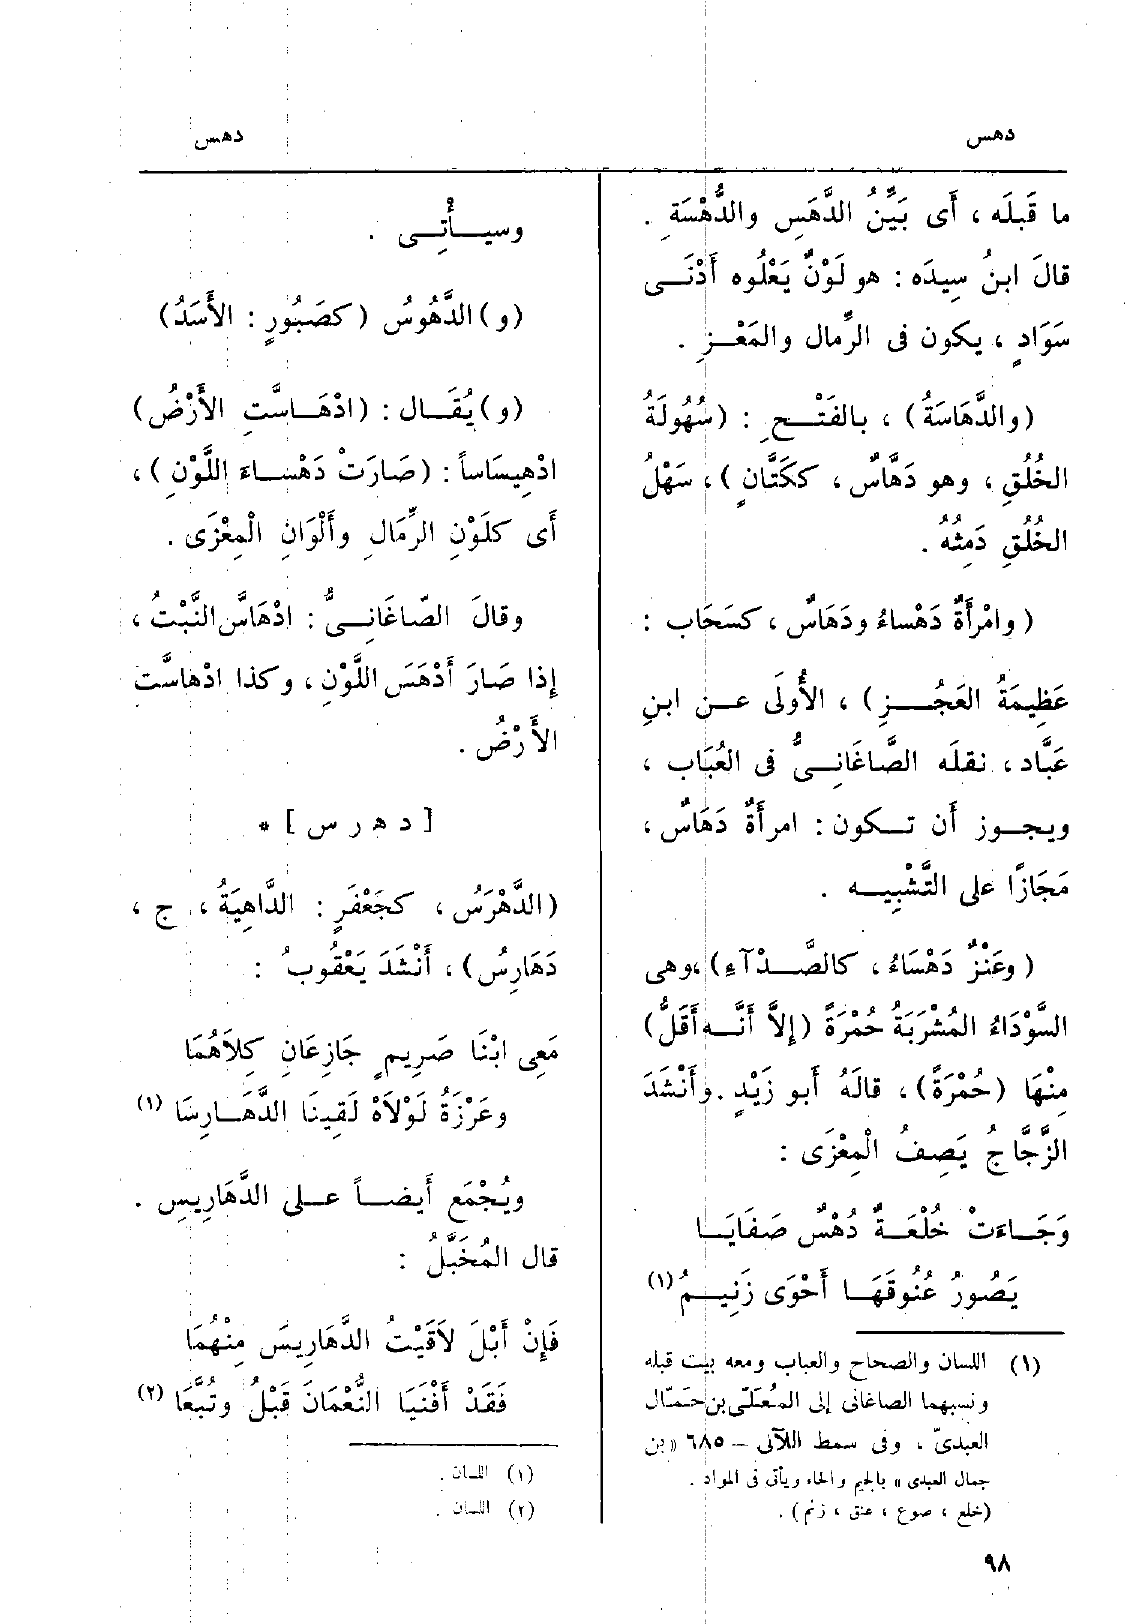 دهس
دهس
ما قَبلَه ، أَى بَيِّنُ الدَّهَسِ والدُّهْسَةِ .
قالَ ابنُ سِيدَه : هو لَوْنٌ يَعْلُوه أَدْنَــى
سَوَادٍ ، يكون فى الرِّمال والمَعْــزِ .
(والدَّهَاسَةُ) ، بالفَتْــحِ : (سُهُولَةُ
الخُلُقِ ، وهو دَهَّاسٌ ، ككَتَّانٍ) ، سَهْلُ
الخُلُقِ دَمِثُهُ .
(وامْرأَةٌ دَهْساءُ ودَهَاسٌ ، كسَحَاب :
عَظِيمَةُ العَجُــــزِ) ، الأُولَى عــن ابنِ
عَبَّاد ، نقلَه الصَّاغَانِــىُّ فى العُبَاب ،
ويجــوز أَن تــكون : امرأَةٌ دَهَاسٌ ،
مَجَازًا على التَّشْبِيــه .
(وعَنْزٌ دَهْسَاءُ ، كالصَّــدْآءِ) ،وهى
السَّوْدَاءُ المُشْرَبَةُ حُمْرَةً (إِلاَّ أَنَّــه أَقَلُّ)
مِنْهَا (حُمْرَةً) ، قالَهُ أَبو زَيْدٍ .وأَنْشَدَ
الزَّجَّاجُ يَصِفُ الْمِعْزَى :
وَجَــاءَتْ خُلْعَــةٌ دُهْسٌ صَفَايَــا
يَصُورُ عُنُوقَهَــا أَحْوَى زَنِيــمُ (١)
(١) اللسان والصحاح والعباب ومعه بيت قبله
ونسبهما الصاغانى إلى المُعَلَّى بن حَمَّال
العبدىّ ، وفى سمط اللآلى – ٦٨٥ « بن
جمال العبدى » بالجيم والحاء ويأتى فى المواد .
(خلع ، صوع ، عنق ، زنم) .
وسيــأْتِــى .
(و) الدَّهُوسُ (كصَبُورٍ : الأَسَدُ)
(و) يُقَــال : (ادْهَــاسَّتِ الأَرْضُ)
ادْهِيسَاساً : (صَارَتْ دَهْســاءَ اللَّوْنِ) ،
أَى كلَوْنِ الرِّمَالِ وأَلْوَانِ الْمِعْزَى .
وقالَ الصّاغَانِــىُّ : ادْهَاسَّ النَّبْتُ ،
إِذا صَارَ أَدْهَسَ اللَّوْنِ ، وكذا ادْهاسَّت
الأَرْضُ .
[ د هـ ر س ] *
(الدَّهْرَسُ ، كجَعْفَرٍ : الدَّاهِيَةُ ، ج ،
دَهَارِسُ) ، أَنْشَدَ يَعْقُوبُ :
مَعِى ابْنَا صَرِيمٍ جَازِعَانِ كِلاَهُمَا
وعَرْزَةُ لَوْلاَهُ لَقِينَا الدَّهَــارِسَا (١)
ويُجْمَع أَيضــاً علــى الدَّهَارِيسِ .
قال المُخَبَّلُ :
فَإِنْ أَبْلَ لاَقَيْتُ الدَّهَارِيسَ مِنْهُمَا
فَقَدْ أَفْنَيَا النُّعْمَانَ قَبْلُ وتُبَّعَا (٢)
(١) اللسان .
(٢) اللسان .
٩٨